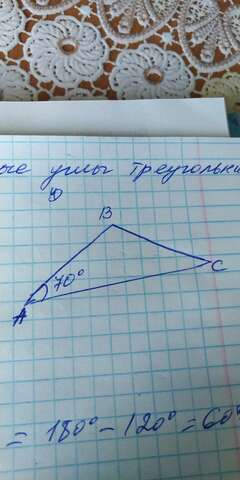 ые углы треугольни
D
B
70°
C
A
= 180° - 120° = 60°